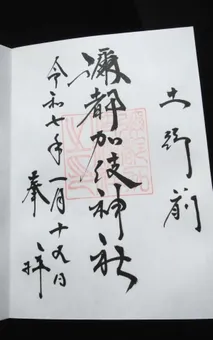 土御前
瀰都加伎神社
令和七年一月十九日
奉拝